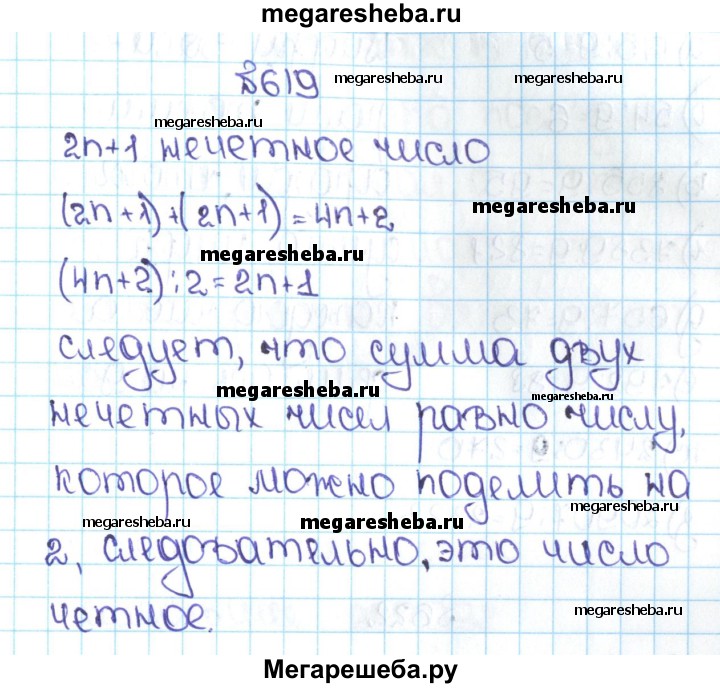 megaresheba.ru
№619 megaresheba.ru megaresheba.ru
megaresheba.ru
2n+1 нечетное число
(2n+1)+(2n+1)=4n+2, megaresheba.ru
megaresheba.ru
(4n+2):2=2n+1
следует, что сумма двух
megaresheba.ru megaresheba.ru
нечетных чисел равно числу,
которое можно поделить на
megaresheba.ru megaresheba.ru megaresheba.ru
2, следовательно, это число
четное. megaresheba.ru
Мегарешеба.ру